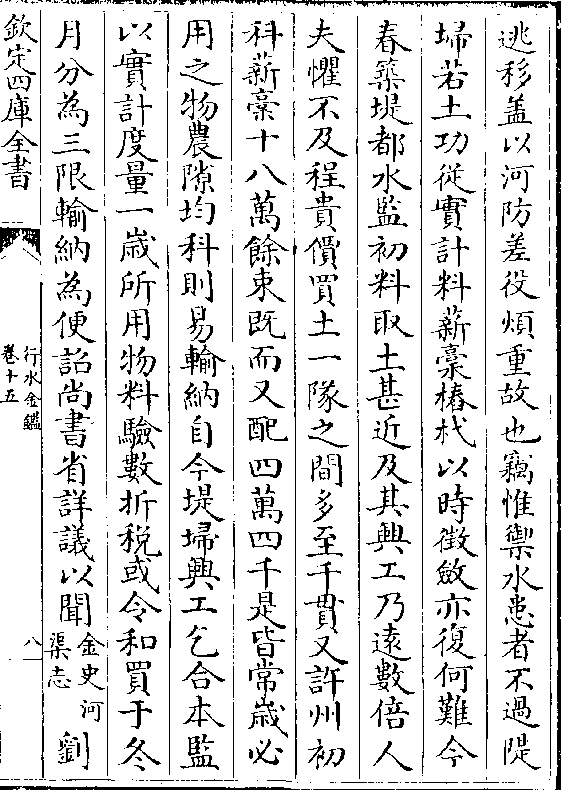 逃移盖以河防差役煩重故也竊惟禦水患者不過隄
埽若土功從實計料薪藁樁杙以時徴斂亦復何難今
春築堤都水監初料取土甚近及其興工乃逺數倍人
夫懼不及程貴價買土一隊之間多至千貫又許州初
科薪藁十八萬餘束既而又配四萬四千是皆常歳必
用之物農隙均科則易輸納自今堤埽興工乞令本監
以實計度量一歳所用物料驗數折税或令和買于冬
月分為三限輸納為便詔尚書省詳議以聞金史河渠志 劉
欽定四庫全書
行水金鑑
卷十五
八